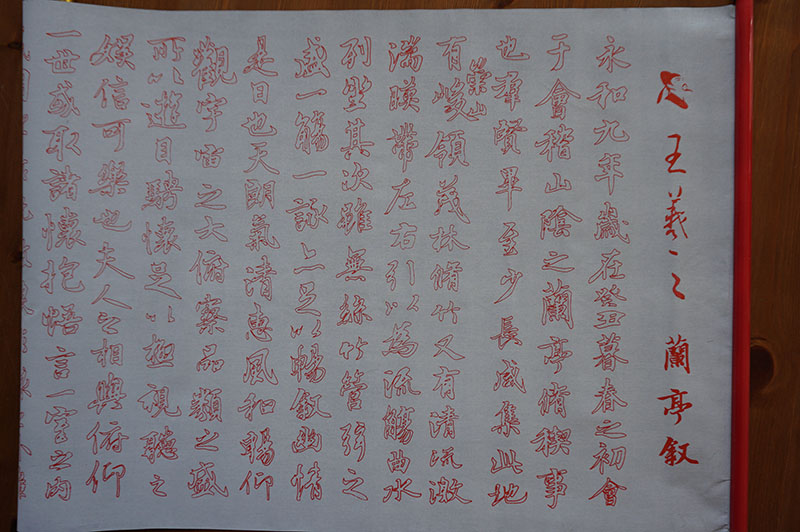 王羲之 蘭亭叙
永和九年歲在癸丑暮春之初會
于會稽山陰之蘭亭脩稧事
也羣賢畢至少長咸集此地
有崇山峻領茂林脩竹又有清流激
湍暎帶左右引以為流觴曲水
列坐其次雖無絲竹管弦之
盛一觴一詠亦足以暢叙幽情
是日也天朗氣清惠風和暢仰
觀宇宙之大俯察品類之盛
所以遊目騁懷足以極視聽之
娛信可樂也夫人之相與俯仰
一世或取諸懷抱悟言一室之內